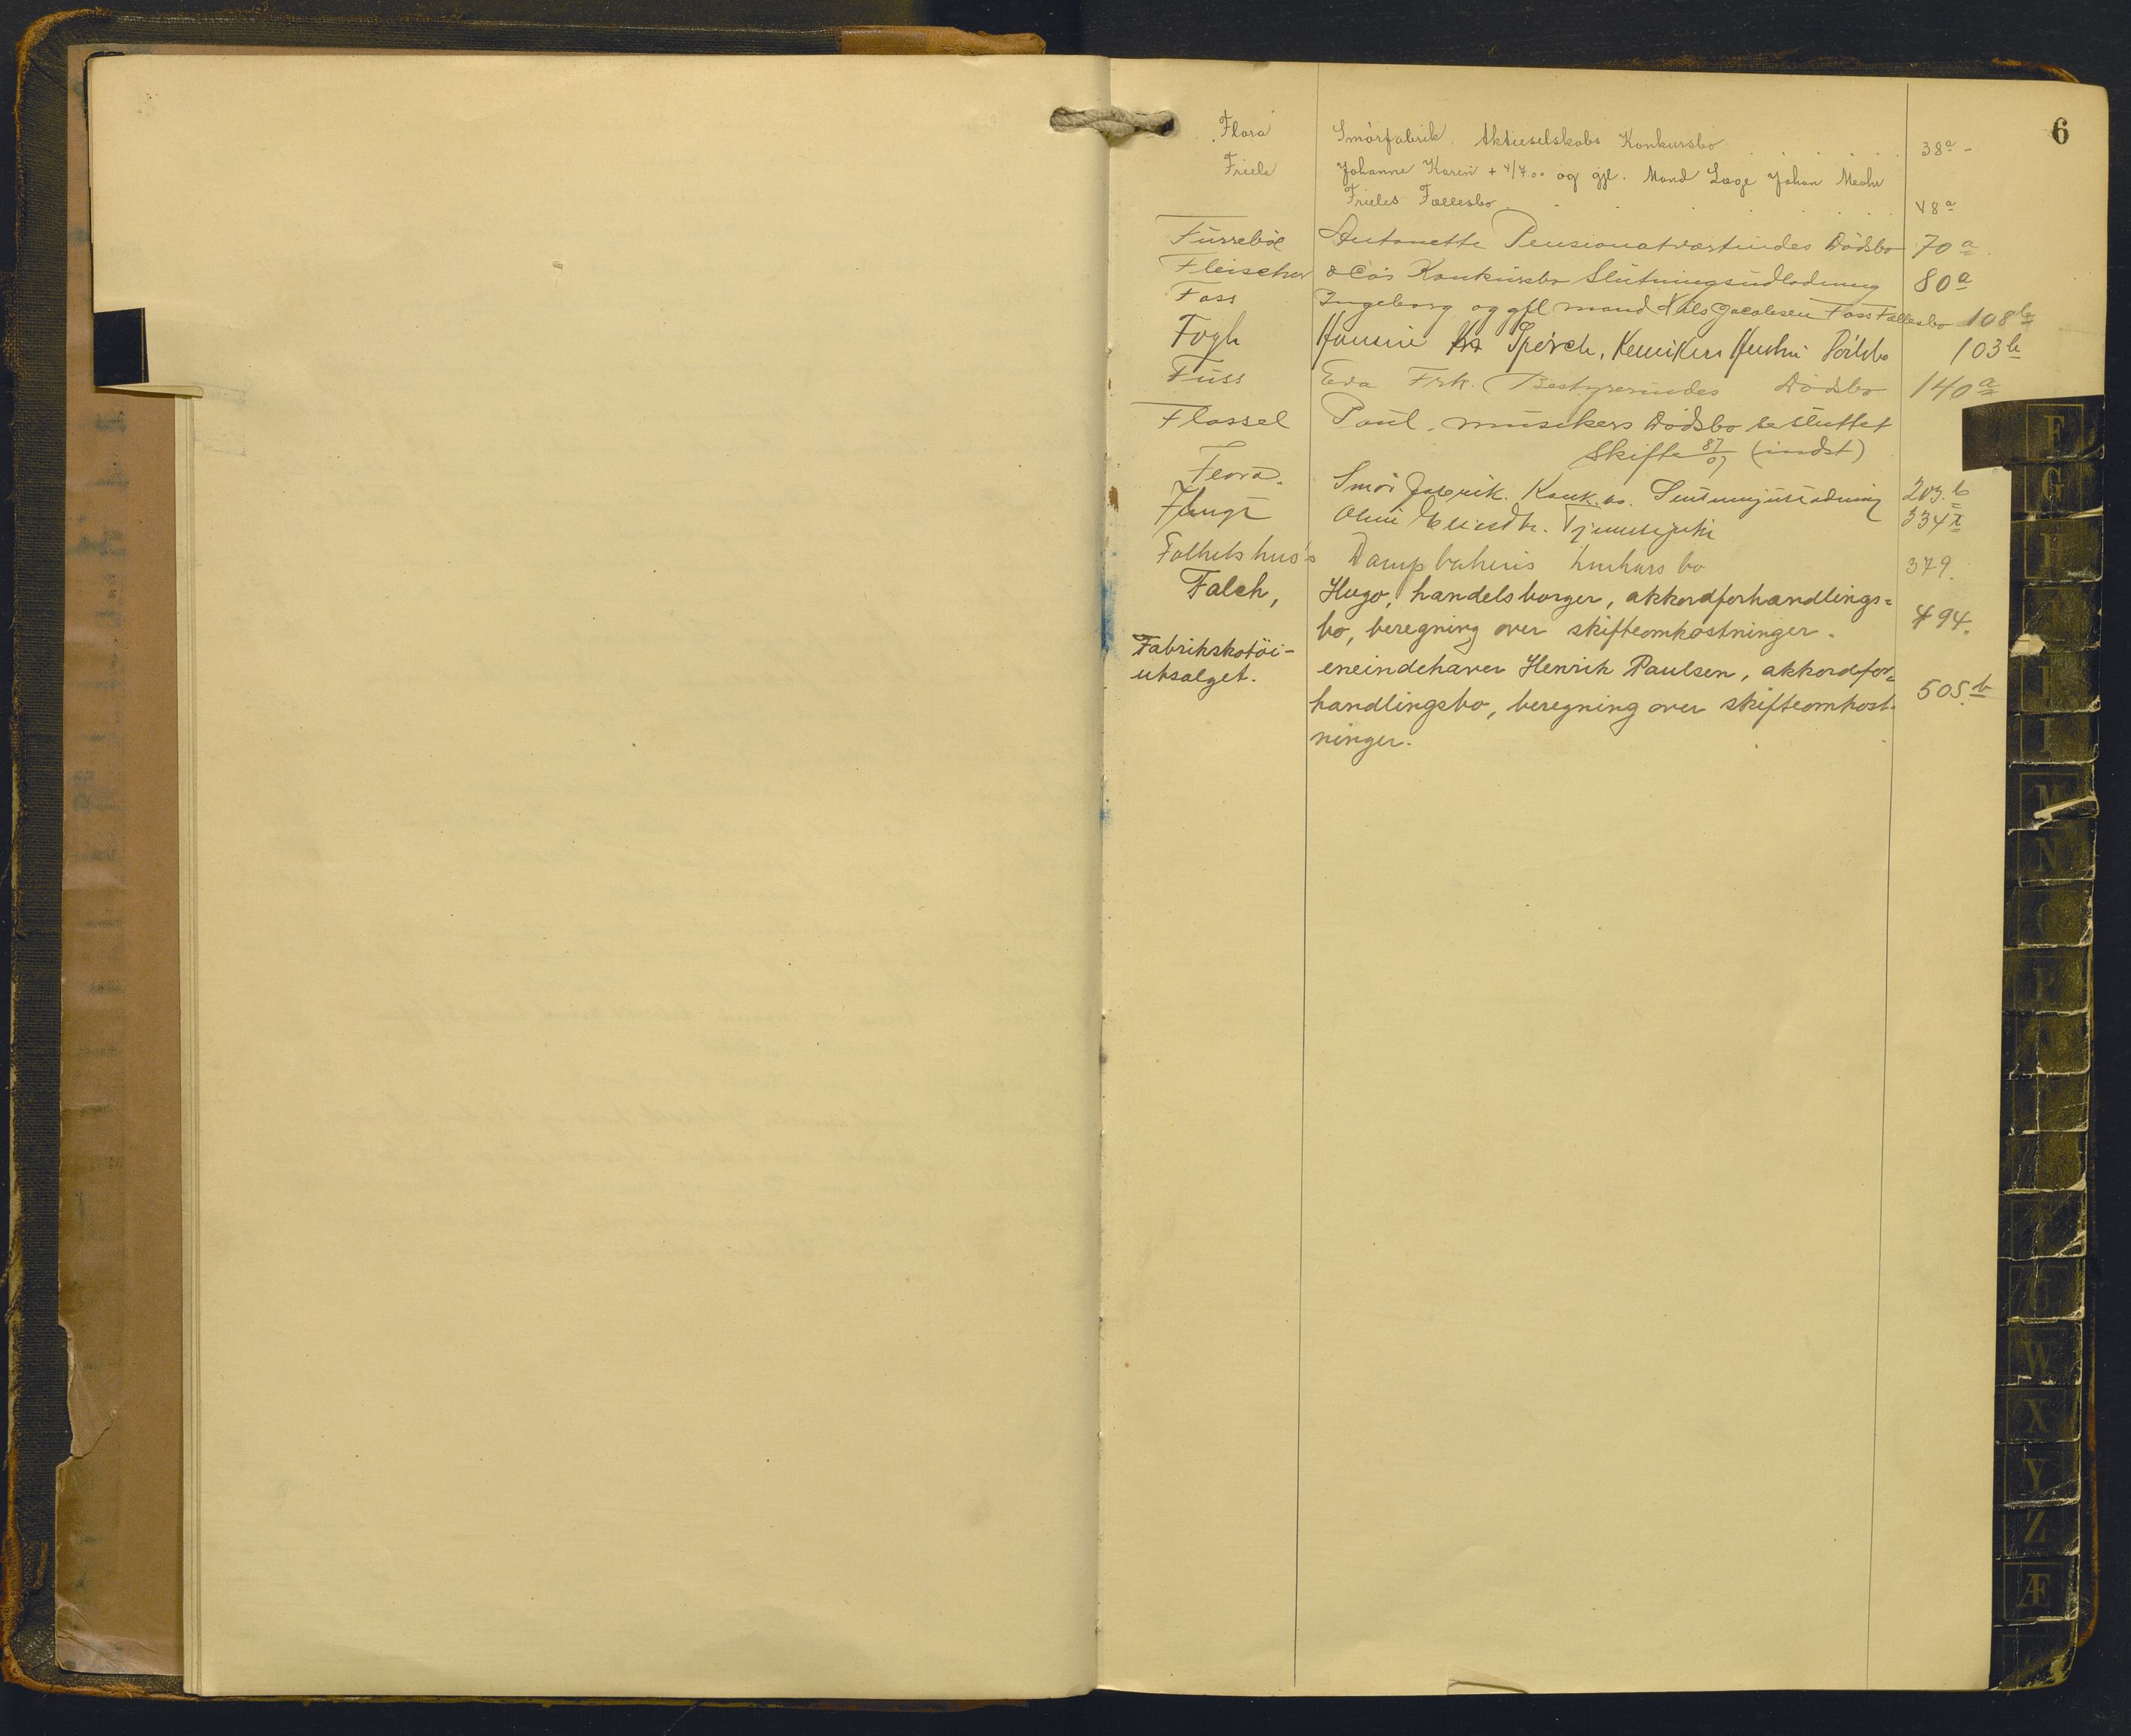 6
Flora Smörfabrik. Aktieselskabs Konkursbo 38a -
Friele Johanne Karen + 4/7.00 og gjl. Mand Læge Johan Mohr
Frieles Fællesbo 48a
Furreböe Antonette Pensionatværtindes Dödsbo 70a
Fleischer & Co's Konkursbo Slutningsudlodning 80a
Foss Ingeborg og gjl mand Nils Jacobsen Foss Fællesbo 108b
Fogh Hansine Spörck, Kemikers Hustru Dödsbo 103b
Fuss Eva Frk. Bestyrerindes Dödsbo 140a
Flassel Paul. musikers Dödsbo se sluttet
Skifte 87/07 (indst)
Flora. Smör fabrik. Konk. bo. Slutningsutlodning 203.b
Oline 334
Folkets hus's Dampbakeris konkurs bo 379.
Falch, Hugo, handelsborger, akkordforhandlings=
bo, beregning over skifteomkostninger. 494.
Fabrikskotöi-
utsalget. eneindehaver Henrik Paulsen, akkordfor=
handlingsbo, beregning over skifteomkost- 505.b
ninger.
F
G
H
M
N
P
U
W
X
Y
Z
Æ